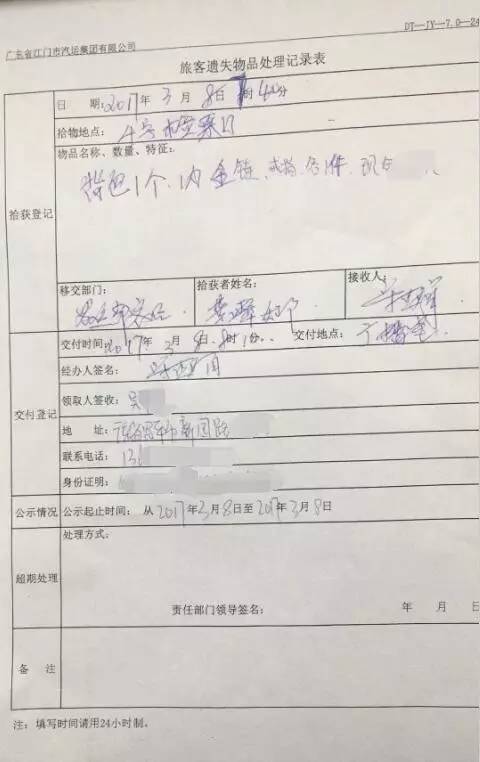 广东省江门市汽运集团有限公司
DT—JY—7.0—24
旅客遗失物品处理记录表
拾获登记
日 期:2017年3月8日 时40分
拾物地点: 4号检票口
物品名称、数量、特征:
背包1个.内金链、戒指、各1件.现金
移交部门:
拾获者姓名:
接收人:
交付登记
交付时间:2017年3月8日.8时1分. 交付地点:
经办人签名:
领取人签收:吴
地 址:
联系电话:136
身份证明:
公示情况
公示起止时间: 从2017年3月8日至2017年3月8日
超期处理
处理方式:
责任部门领导签名: 年 月 日
备 注
注: 填写时间请用24小时制。